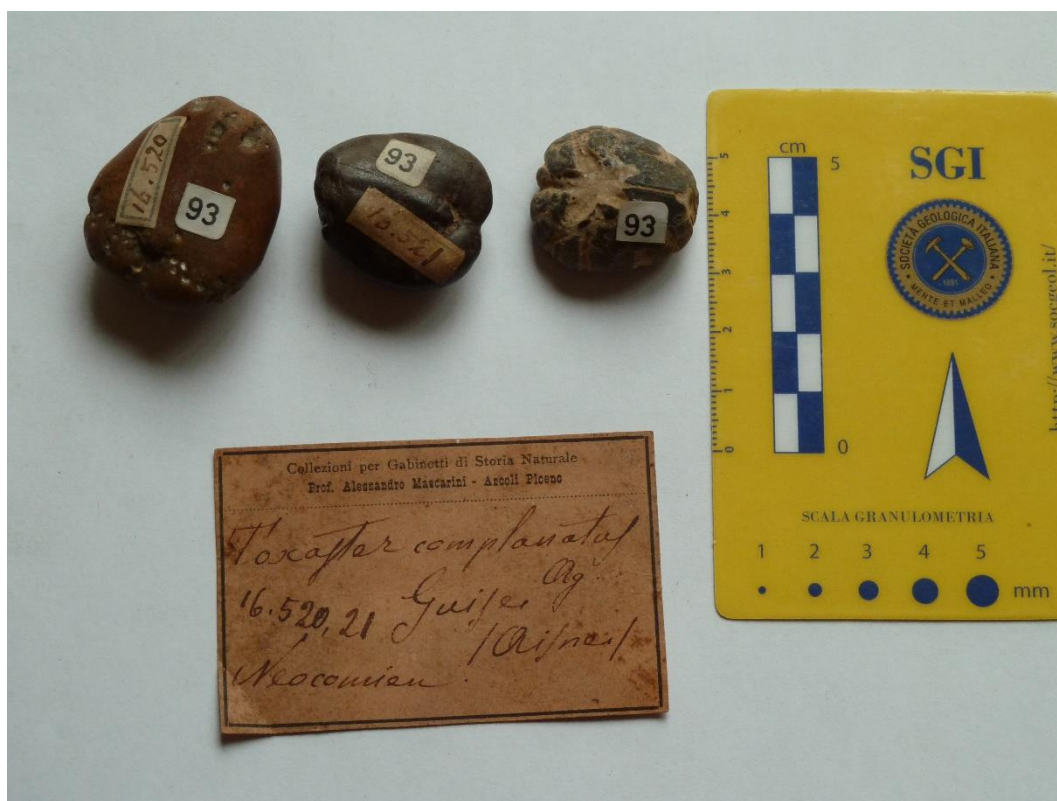 16.520
93
93
16.521
93
cm
5
0
5
4
3
2
1
0
SGI
SOCIETÀ GEOLOGICA ITALIANA
1881
MENTE ET MALLEO
http://www.socgeol.it/
SCALA GRANULOMETRIA
1 2 3 4 5
mm
Collezioni per Gabinetti di Storia Naturale
Prof. Alessandro Mascarini - Ascoli Piceno
Toxaster complanatus
Ag.
16.520, 21 Guise
(Aisne)
Néocomien